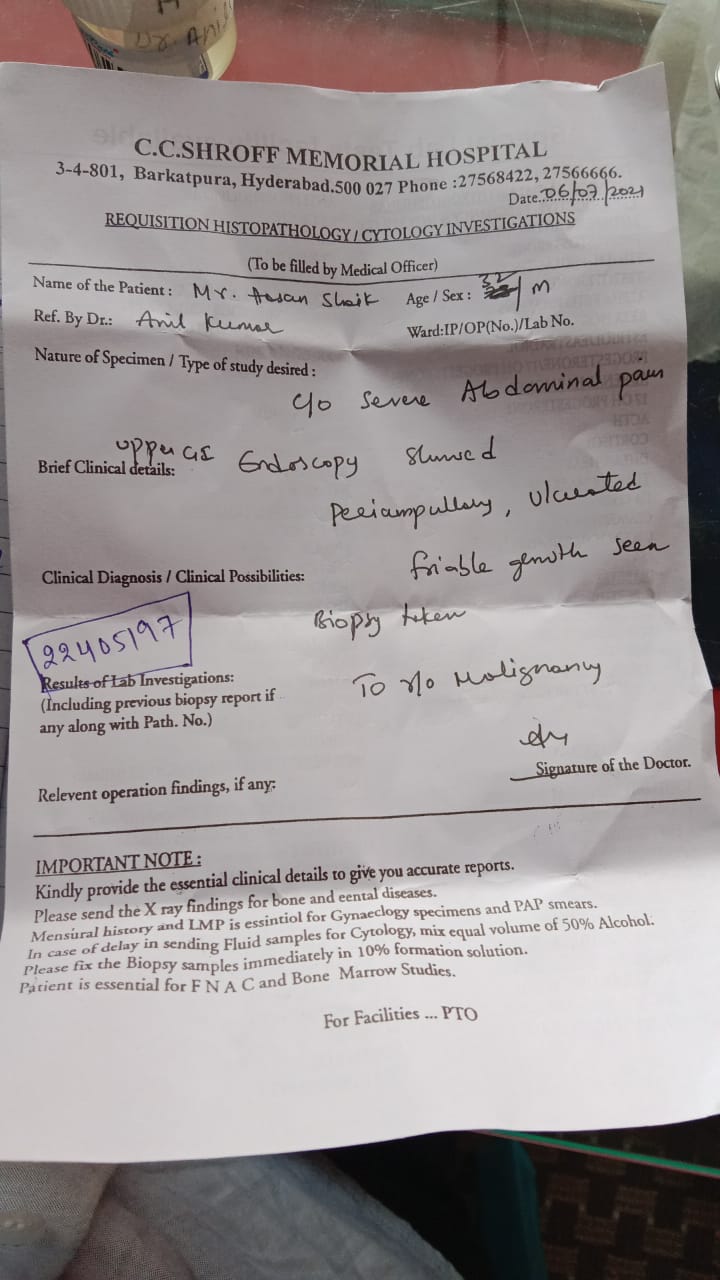 Dr. Anil
C.C.SHROFF MEMORIAL HOSPITAL
3-4-801, Barkatpura, Hyderabad.500 027 Phone :27568422, 27566666.
Date..06/07/2021
REQUISITION HISTOPATHOLOGY / CYTOLOGY INVESTIGATIONS
(To be filled by Medical Officer)
Name of the Patient : Mr. Hasan Shaik Age / Sex : 32/M
Ref. By Dr.: Anil Kumar Ward:IP/OP(No.)/Lab No.
Nature of Specimen / Type of study desired :
c/o Severe Abdominal pain
Brief Clinical details: upper GI Endoscopy showed
Periampullary, ulcerated
Clinical Diagnosis / Clinical Possibilities: friable growth seen
Biopsy taken
22405197
Results of Lab Investigations: To r/o Malignancy
(Including previous biopsy report if
any along with Path. No.)
Signature of the Doctor.
Relevent operation findings, if any:
IMPORTANT NOTE :
Kindly provide the essential clinical details to give you accurate reports.
Please send the X ray findings for bone and eental diseases.
Mensural history and LMP is essintiol for Gynaeclogy specimens and PAP smears.
In case of delay in sending Fluid samples for Cytology, mix equal volume of 50% Alcohol.
Please fix the Biopsy samples immediately in 10% formation solution.
Patient is essential for F N A C and Bone Marrow Studies.
For Facilities ... PTO